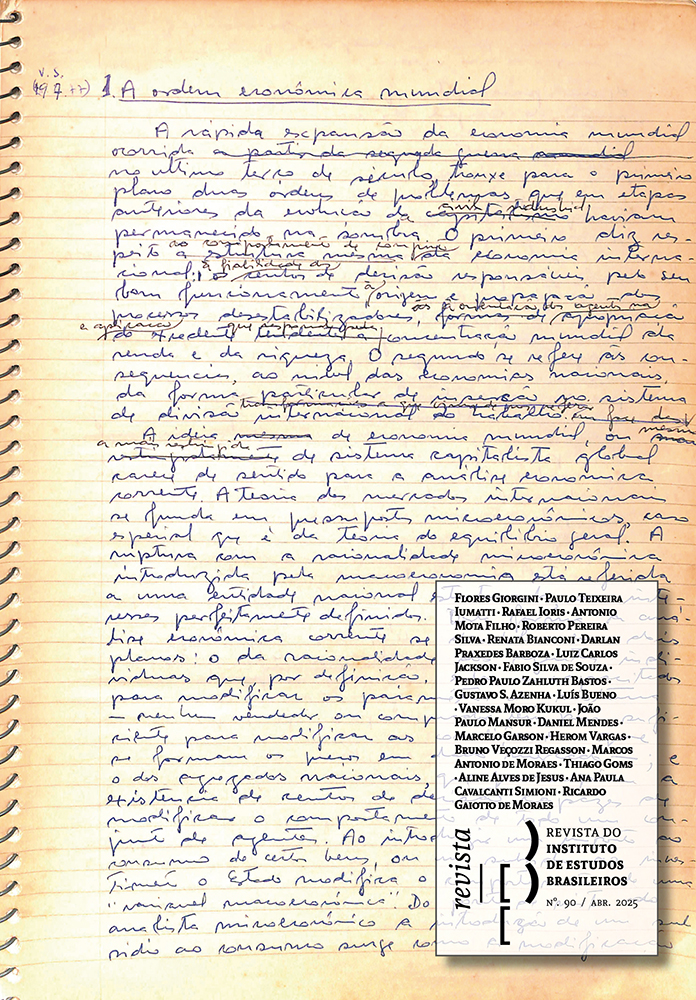 V.S.
(1977)
1. A ordem econômica mundial
A rápida expansão da economia mundial
ocorrida a partir da segunda guerra mundial
no último terço de século, trouxe para o primeiro
plano duas ordens de problemas que em etapas
anteriores da evolução do capitalismo haviam
permanecido na sombra. O primeiro diz res-
peito ao comportamento
a estrutura mesma da economia interna-
cional: os centros de decisão responsáveis pelo seu
bom funcionamento, origem e propagação dos
processos desestabilizadores, formas de apropriação
e aplicação
do excedente tendentes a concentração mundial da
renda e da riqueza. O segundo se refere às con-
sequências, ao nível das economias nacionais,
da forma particular de inserção no sistema
de divisão internacional do trabalho
A ideia mesma de economia mundial, ou mesmo
a mais restrita
de sistema capitalista global
carece de sentido para a análise econômica
corrente. A teoria dos mercados internacionais
se funda em pressupostos microeconômicos, caso
especial que é da teoria do equilíbrio geral. A
ruptura com a racionalidade microeconômica
introduzida pela macroeconomia está referida
a uma entidade nacional
resses perfeitamente definidos.
lise econômica corrente se
planos: o da racionalidade
viduais que, por definição,
para modificar os parâm
– nenhum vendedor ou comp
ciente para modificar as
se formam os preços em
o dos agregados nacionais,
existência de centros de de
modificar o comportamento
junto de agentes. Ao introd
consumo de certos bens, ou
o Estado modifica o
"variável macroeconômica". Do
analista microeconômico a introdução de um sub
sídio ao consumo surge como a modificação
Flores Giorgini · Paulo Teixeira
Iumatti · Rafael Ioris · Antonio
Mota Filho · Roberto Pereira
Silva · Renata Bianconi · Darlan
Praxedes Barboza · Luiz Carlos
Jackson · Fabio Silva de Souza ·
Pedro Paulo Zahluth Bastos ·
Gustavo S. Azenha · Luís Bueno
· Vanessa Moro Kukul · João
Paulo Mansur · Daniel Mendes ·
Marcelo Garson · Herom Vargas ·
Bruno Veçozzi Regasson · Marcos
Antonio de Moraes · Thiago Goms
· Aline Alves de Jesus · Ana Paula
Cavalcanti Simioni · Ricardo
Gaiotto de Moraes
revista
REVISTA DO
INSTITUTO
DE ESTUDOS
BRASILEIROS
Nº. 90 / ABR. 2025